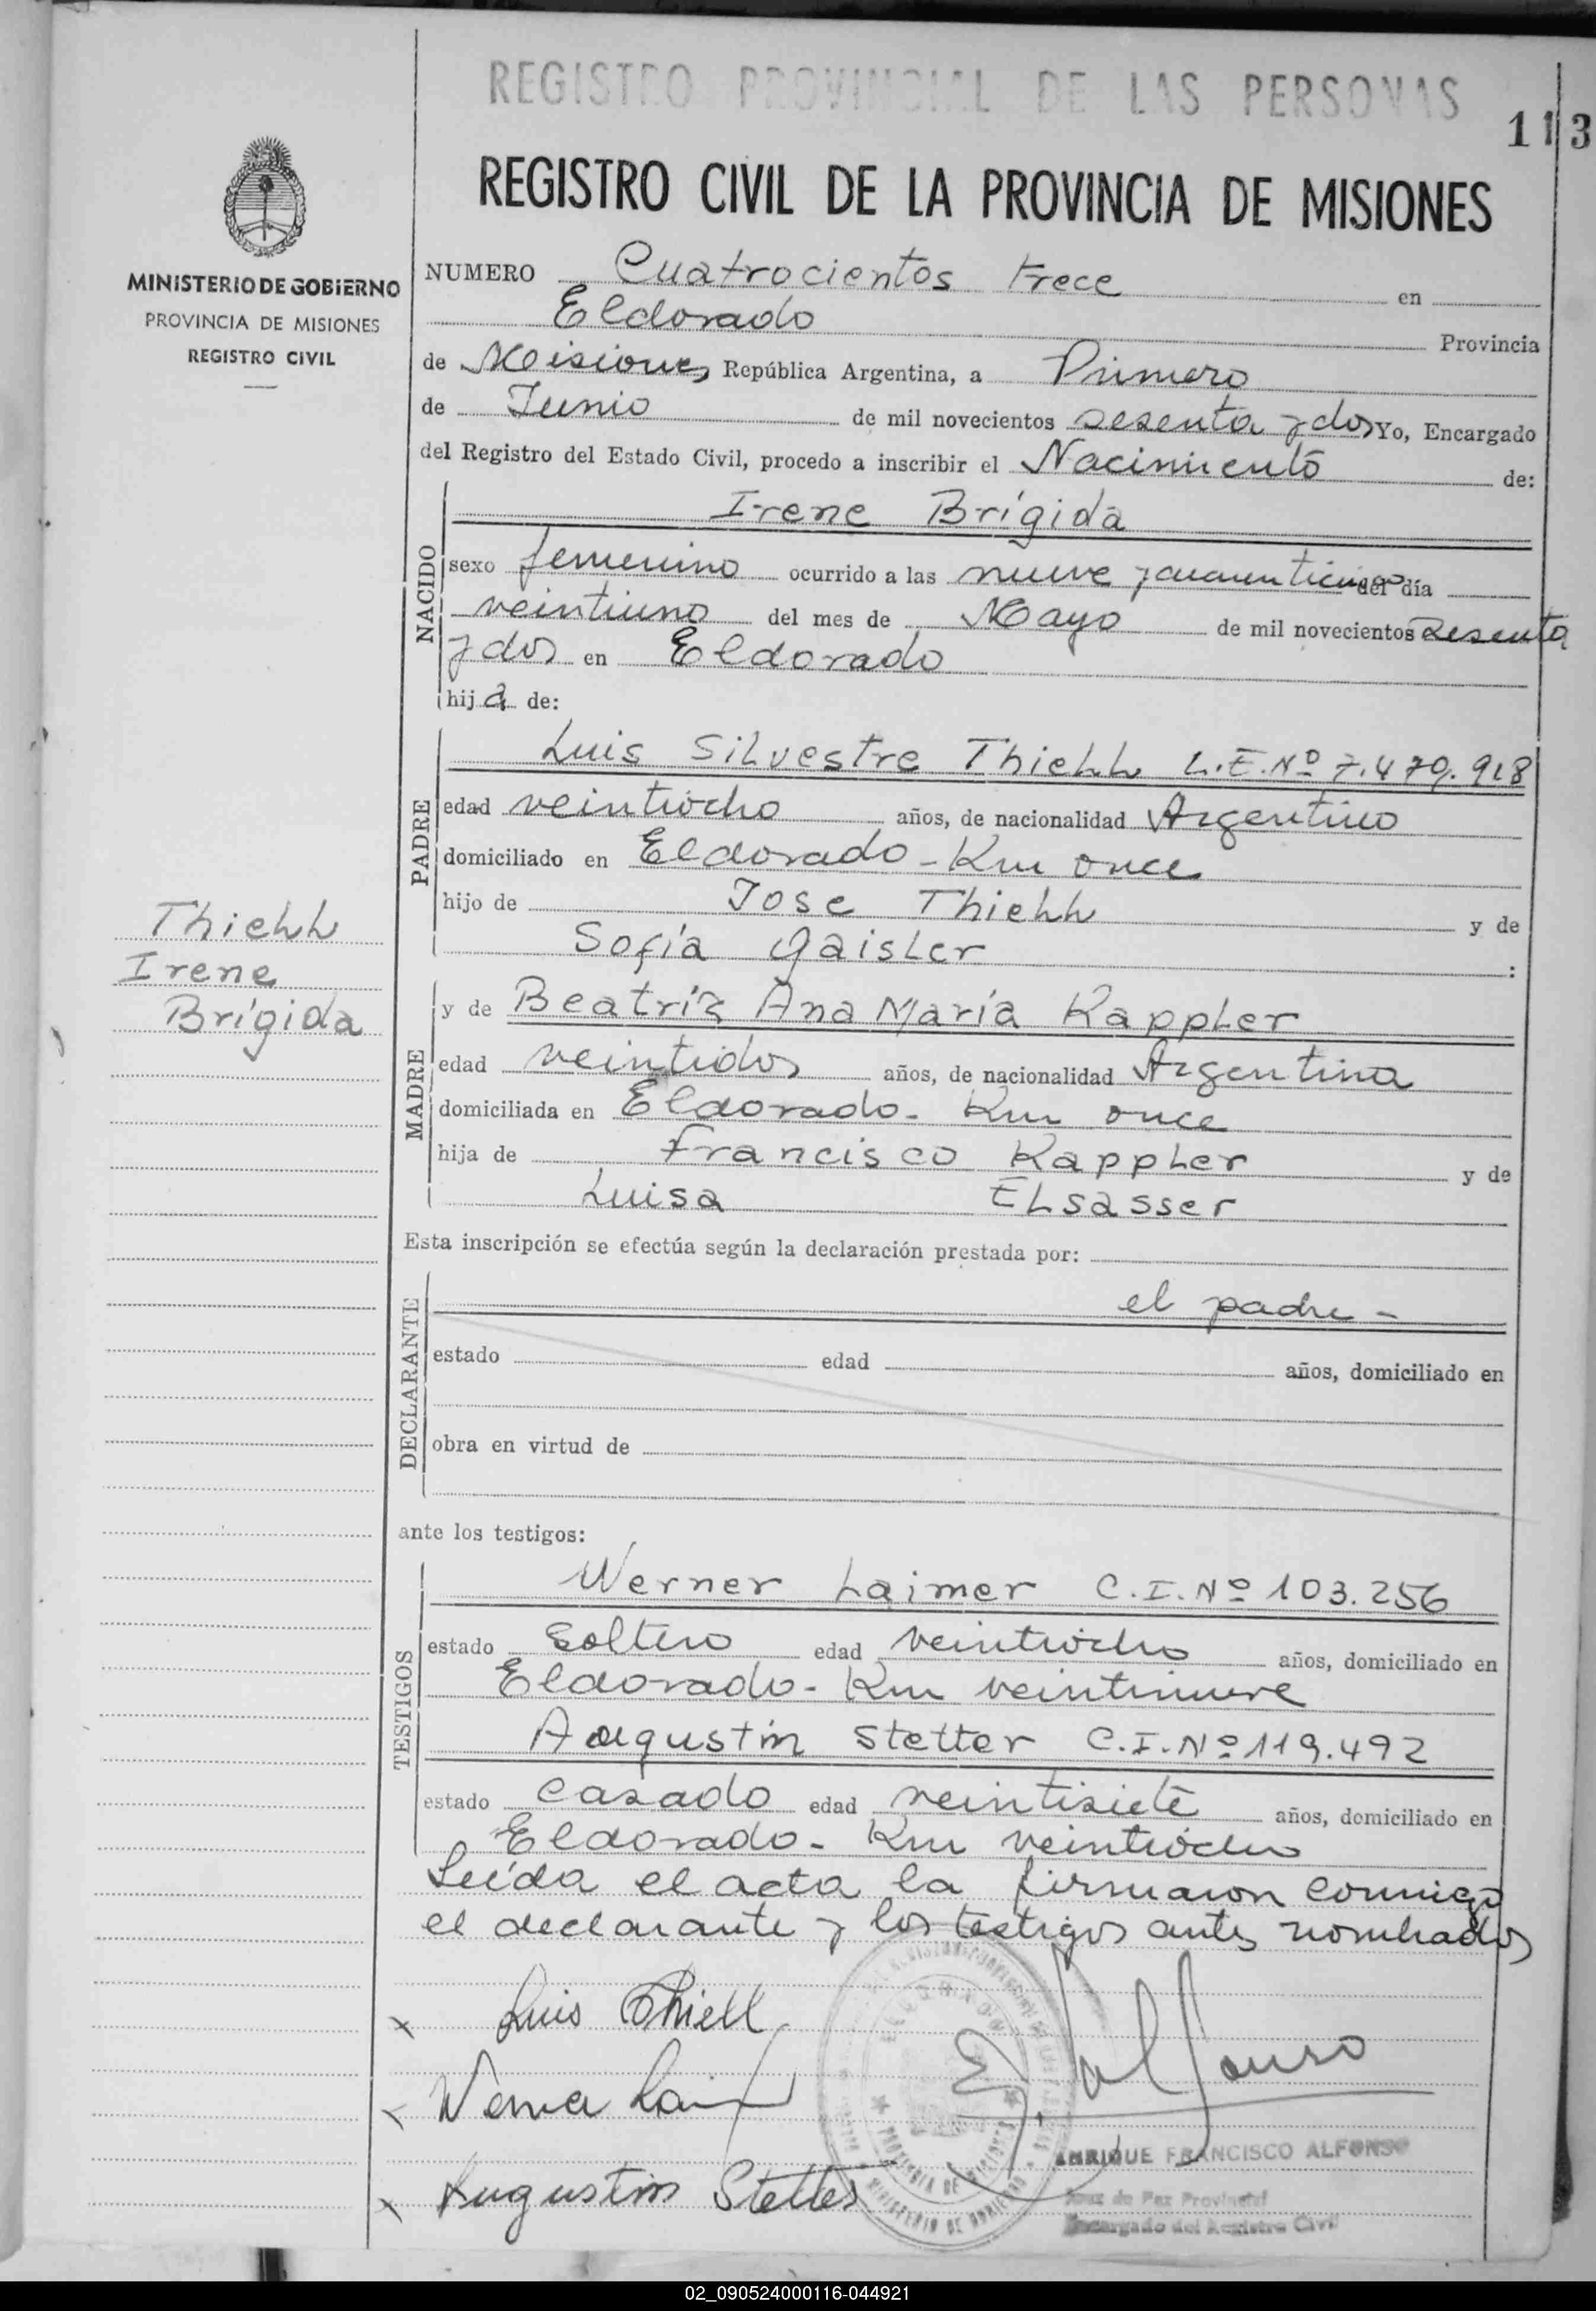 REGISTRO PROVINCIAL DE LAS PERSONAS
113
REGISTRO CIVIL DE LA PROVINCIA DE MISIONES
MINISTERIO DE GOBIERNO
PROVINCIA DE MISIONES
REGISTRO CIVIL
NUMERO Cuatrocientos trece en
Eldorado Provincia
de Misiones República Argentina, a Primero
de Junio de mil novecientos sesenta y dos Yo, Encargado
del Registro del Estado Civil, procedo a inscribir el Nacimiento de:
NACIDO
Irene Brígida
sexo femenino ocurrido a las nueve y cuarenticinco del día
veintiuno del mes de Mayo de mil novecientos sesenta
y dos en Eldorado
hija de:
PADRE
Luis Silvestre Thiell L.E.Nº 7.470.918
edad veintiocho años, de nacionalidad Argentino
domiciliado en Eldorado - Km once
hijo de Jose Thiell y de
Sofía Gaisler :
Thiell
Irene
Brígida
MADRE
y de Beatriz Ana María Kappler
edad veintidos años, de nacionalidad Argentina
domiciliada en Eldorado - Km once
hija de Francisco Kappler y de
Luisa Elsasser
Esta inscripción se efectúa según la declaración prestada por:
DECLARANTE
el padre -
estado edad años, domiciliado en
obra en virtud de
ante los testigos:
TESTIGOS
Werner Laimer C.I.Nº 103.256
estado Soltero edad veintiocho años, domiciliado en
Eldorado - Km veintinueve
Augustin Stetter C.I.Nº 119.492
estado casado edad veintisiete años, domiciliado en
Eldorado - Km veintiocho
Leída el acta la firmaron conmigo
el declarante y los testigos antes nombrados
Luis Thiell
Werner
Augustin Stetter
E. Alfonso
ENRIQUE FRANCISCO ALFONSO
Juez de Paz Provincial
Encargado del Registro Civil
PROVINCIA DE MISIONES
MINISTERIO DE GOBIERNO
02_090524000116-044921